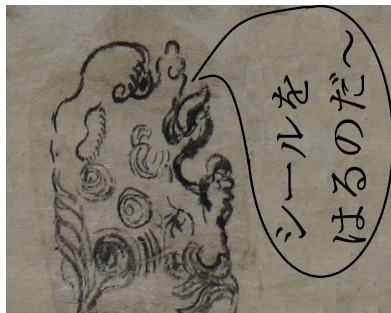 シールを
はるのだ～